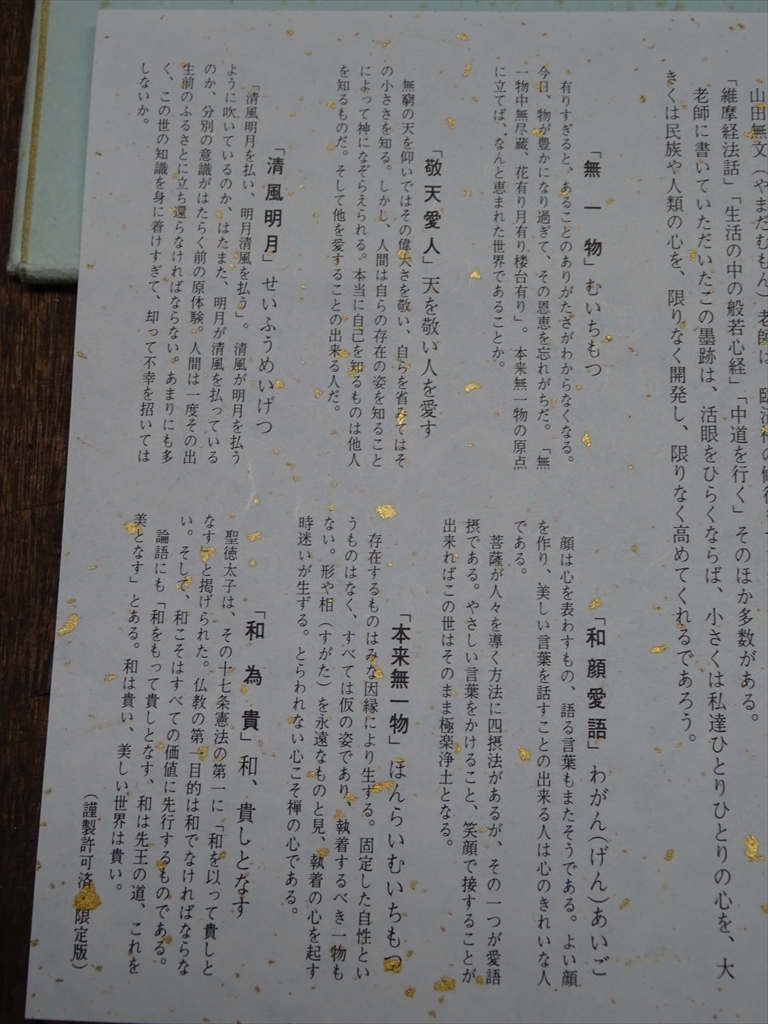 山田無文（やまだむもん）老師は、臨済禅の修行を
「維摩経法話」「生活の中の般若心経」「中道を行く」そのほか多数がある。
老師に書いていただいたこの墨跡は、活眼をひらくならば、小さくは私達ひとりひとりの心を、大
きくは民族や人類の心を、限りなく開発し、限りなく高めてくれるであろう。
「無一物」むいちもつ
有りすぎると、あることのありがたさがわからなくなる。
今日、物が豊かになり過ぎて、その恩恵を忘れがちだ。「無
一物中無尽蔵、花有り月有り楼台有り」。本来無一物の原点
に立てば、なんと恵まれた世界であることか。
「敬天愛人」天を敬い人を愛す
無窮の天を仰いではその偉大さを敬い、自らを省みてはそ
の小ささを知る。しかし、人間は自らの存在の姿を知ること
によって神になぞらえられる。本当に自己を知るものは他人
を知るものだ。そして他を愛することの出来る人だ。
「清風明月」せいふうめいげつ
「清風明月を払い、明月清風を払う」。清風が明月を払う
ように吹いているのか、はたまた、明月が清風を払っている
のか、分別の意識がはたらく前の原体験。人間は一度その出
生前のふるさとに立ち還らなければならない。あまりにも多
く、この世の知識を身に着けすぎて、却って不幸を招いては
しないか。
「和顔愛語」わがん（げん）あいご
顔は心を表わすもの、語る言葉もまたそうである。よい顔
を作り、美しい言葉を話すことの出来る人は心のきれいな人
である。
菩薩が人々を導く方法に四摂法があるが、その一つが愛語
摂である。やさしい言葉をかけること、笑顔で接することが
出来ればこの世はそのまま極楽浄土となる。
「本来無一物」ほんらいむいちもつ
存在するものはみな因縁により生ずる。固定した自性とい
うものはなく、すべては仮の姿であり、執着するべき一物も
ない。形や相（すがた）を永遠なものと見、執着の心を起す
時迷いが生ずる。とらわれない心こそ禅の心である。
「和為貴」和、貴しとなす
聖徳太子は、その十七条憲法の第一に「和を以って貴しと
なす」と掲げられた。仏教の第一目的は和でなければならな
い。そして、和こそはすべての価値に先行するものである。
論語にも「和をもって貴しとなす、和は先王の道、これを
美となす」とある。和は貴い、美しい世界は貴い。
（謹製許可済・限定版）